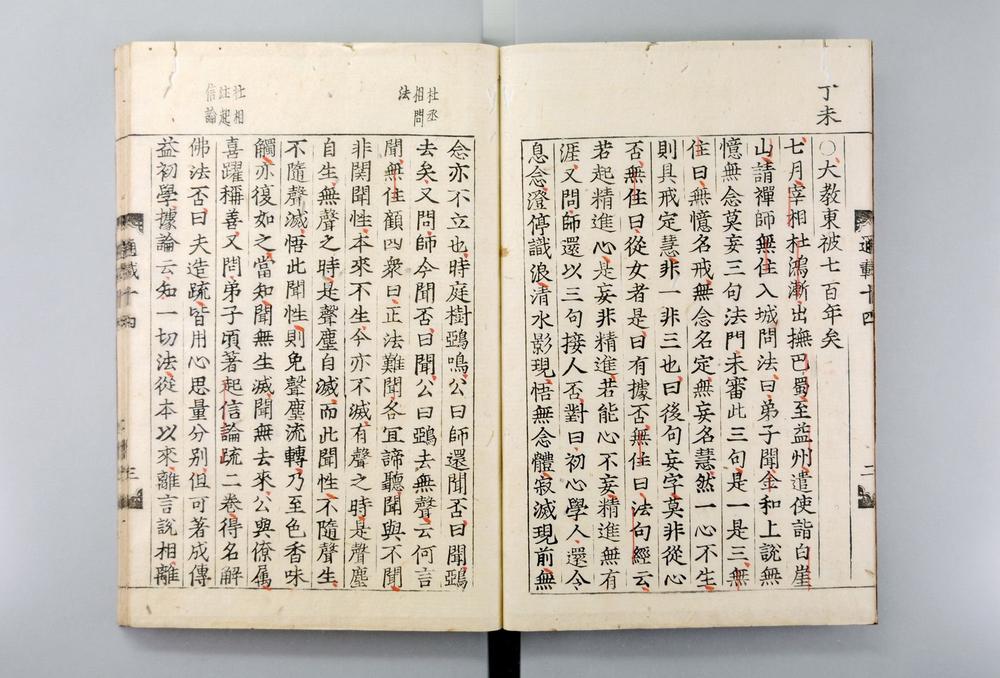 丁未
〇大教東被七百年矣
七月宰相杜鴻漸出撫巴蜀至益州遣使詣白崖
山請禪師無住入城問法曰弟子聞金和上說無
憶無念莫妄三句法門未審此三句是一是三無
住曰無憶名戒無念名定無妄名慧然一心不生
則具戒定慧非一非三也曰後句妄字莫非從心
否無住曰從女者是曰有據否無住曰法句經云
若起精進心是妄非精進若能心不妄精進無有
涯又問師還以三句接人否對曰初心學人還令
息念澄停識浪清水影現悟無念體寂滅現前無
通載十四
二
杜丞
相問
法
杜相
註起
信論
念亦不立也時庭樹鵶鳴公曰師還聞否曰聞鵶
去矣又問師今聞否曰聞公曰鵶去無聲云何言
聞無住顧四衆曰正法難聞各宜諦聽聞與不聞
非関聞性本來不生今亦不滅有聲之時是聲塵
自生無聲之時是聲塵自滅而此聞性不隨聲生
不隨聲滅悟此聞性則免聲塵流轉乃至色香味
觸亦復如之當知聞無生滅聞無去來公與僚属
喜躍稱善又問弟子頃著起信論疏二卷得名解
佛法否曰夫造疏皆用心思量分别但可著成傳
益初學據論云知一切法從本以來離言說相離